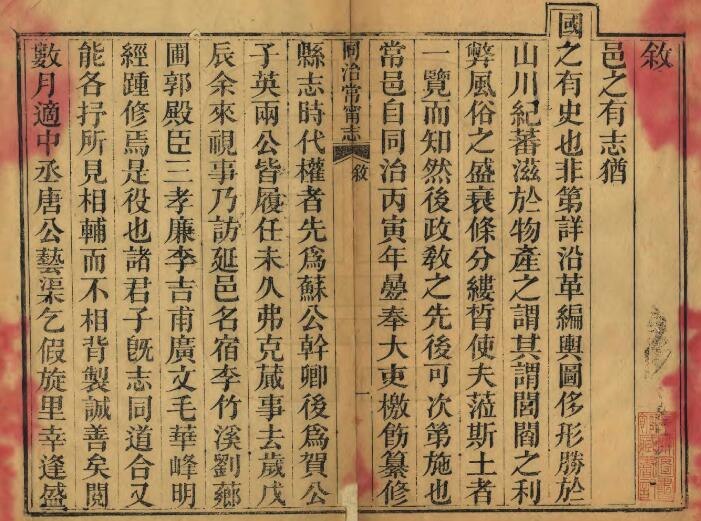 敘
邑之有志猶
國之有史也非第詳沿革編輿圖侈形勝於
山川紀蕃滋於物產之謂其謂閭閻之利
弊風俗之盛衰條分縷晳使夫蒞斯土者
一覽而知然後政敎之先後可次第施也
常邑自同治丙寅年曇奉大吏檄飭纂修
同治常甯志 敘 一
縣志時代權者先爲蘇公幹卿後爲賀公
子英兩公皆履任未久弗克蕆事去歲戊
辰余來視事乃訪延邑名宿李竹溪劉薌
圃郭殿臣三孝廉李吉甫廣文毛華峰明
經踵修焉是役也諸君子旣志同道合又
能各抒所見相輔而不相背製誠善矣閱
數月適中丞唐公藝渠乞假旋里幸逢盛